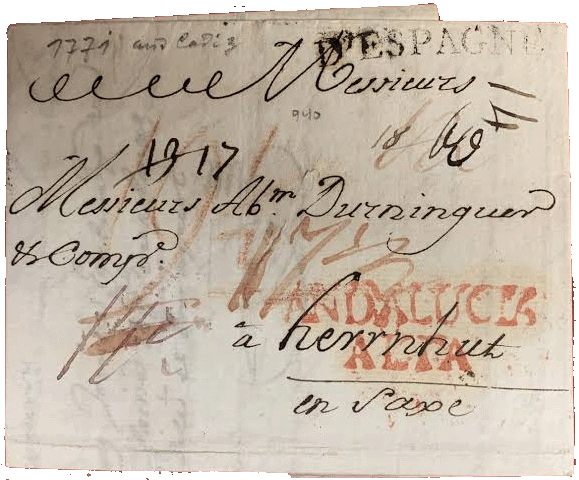 1771 aus Cadiz
D'ESPAGNE
Messieurs
940
18
1917
Messieurs Abm. Durninguer
& Compe.
ANDALUCIA
ALTA
à herrnhut
en Saxe